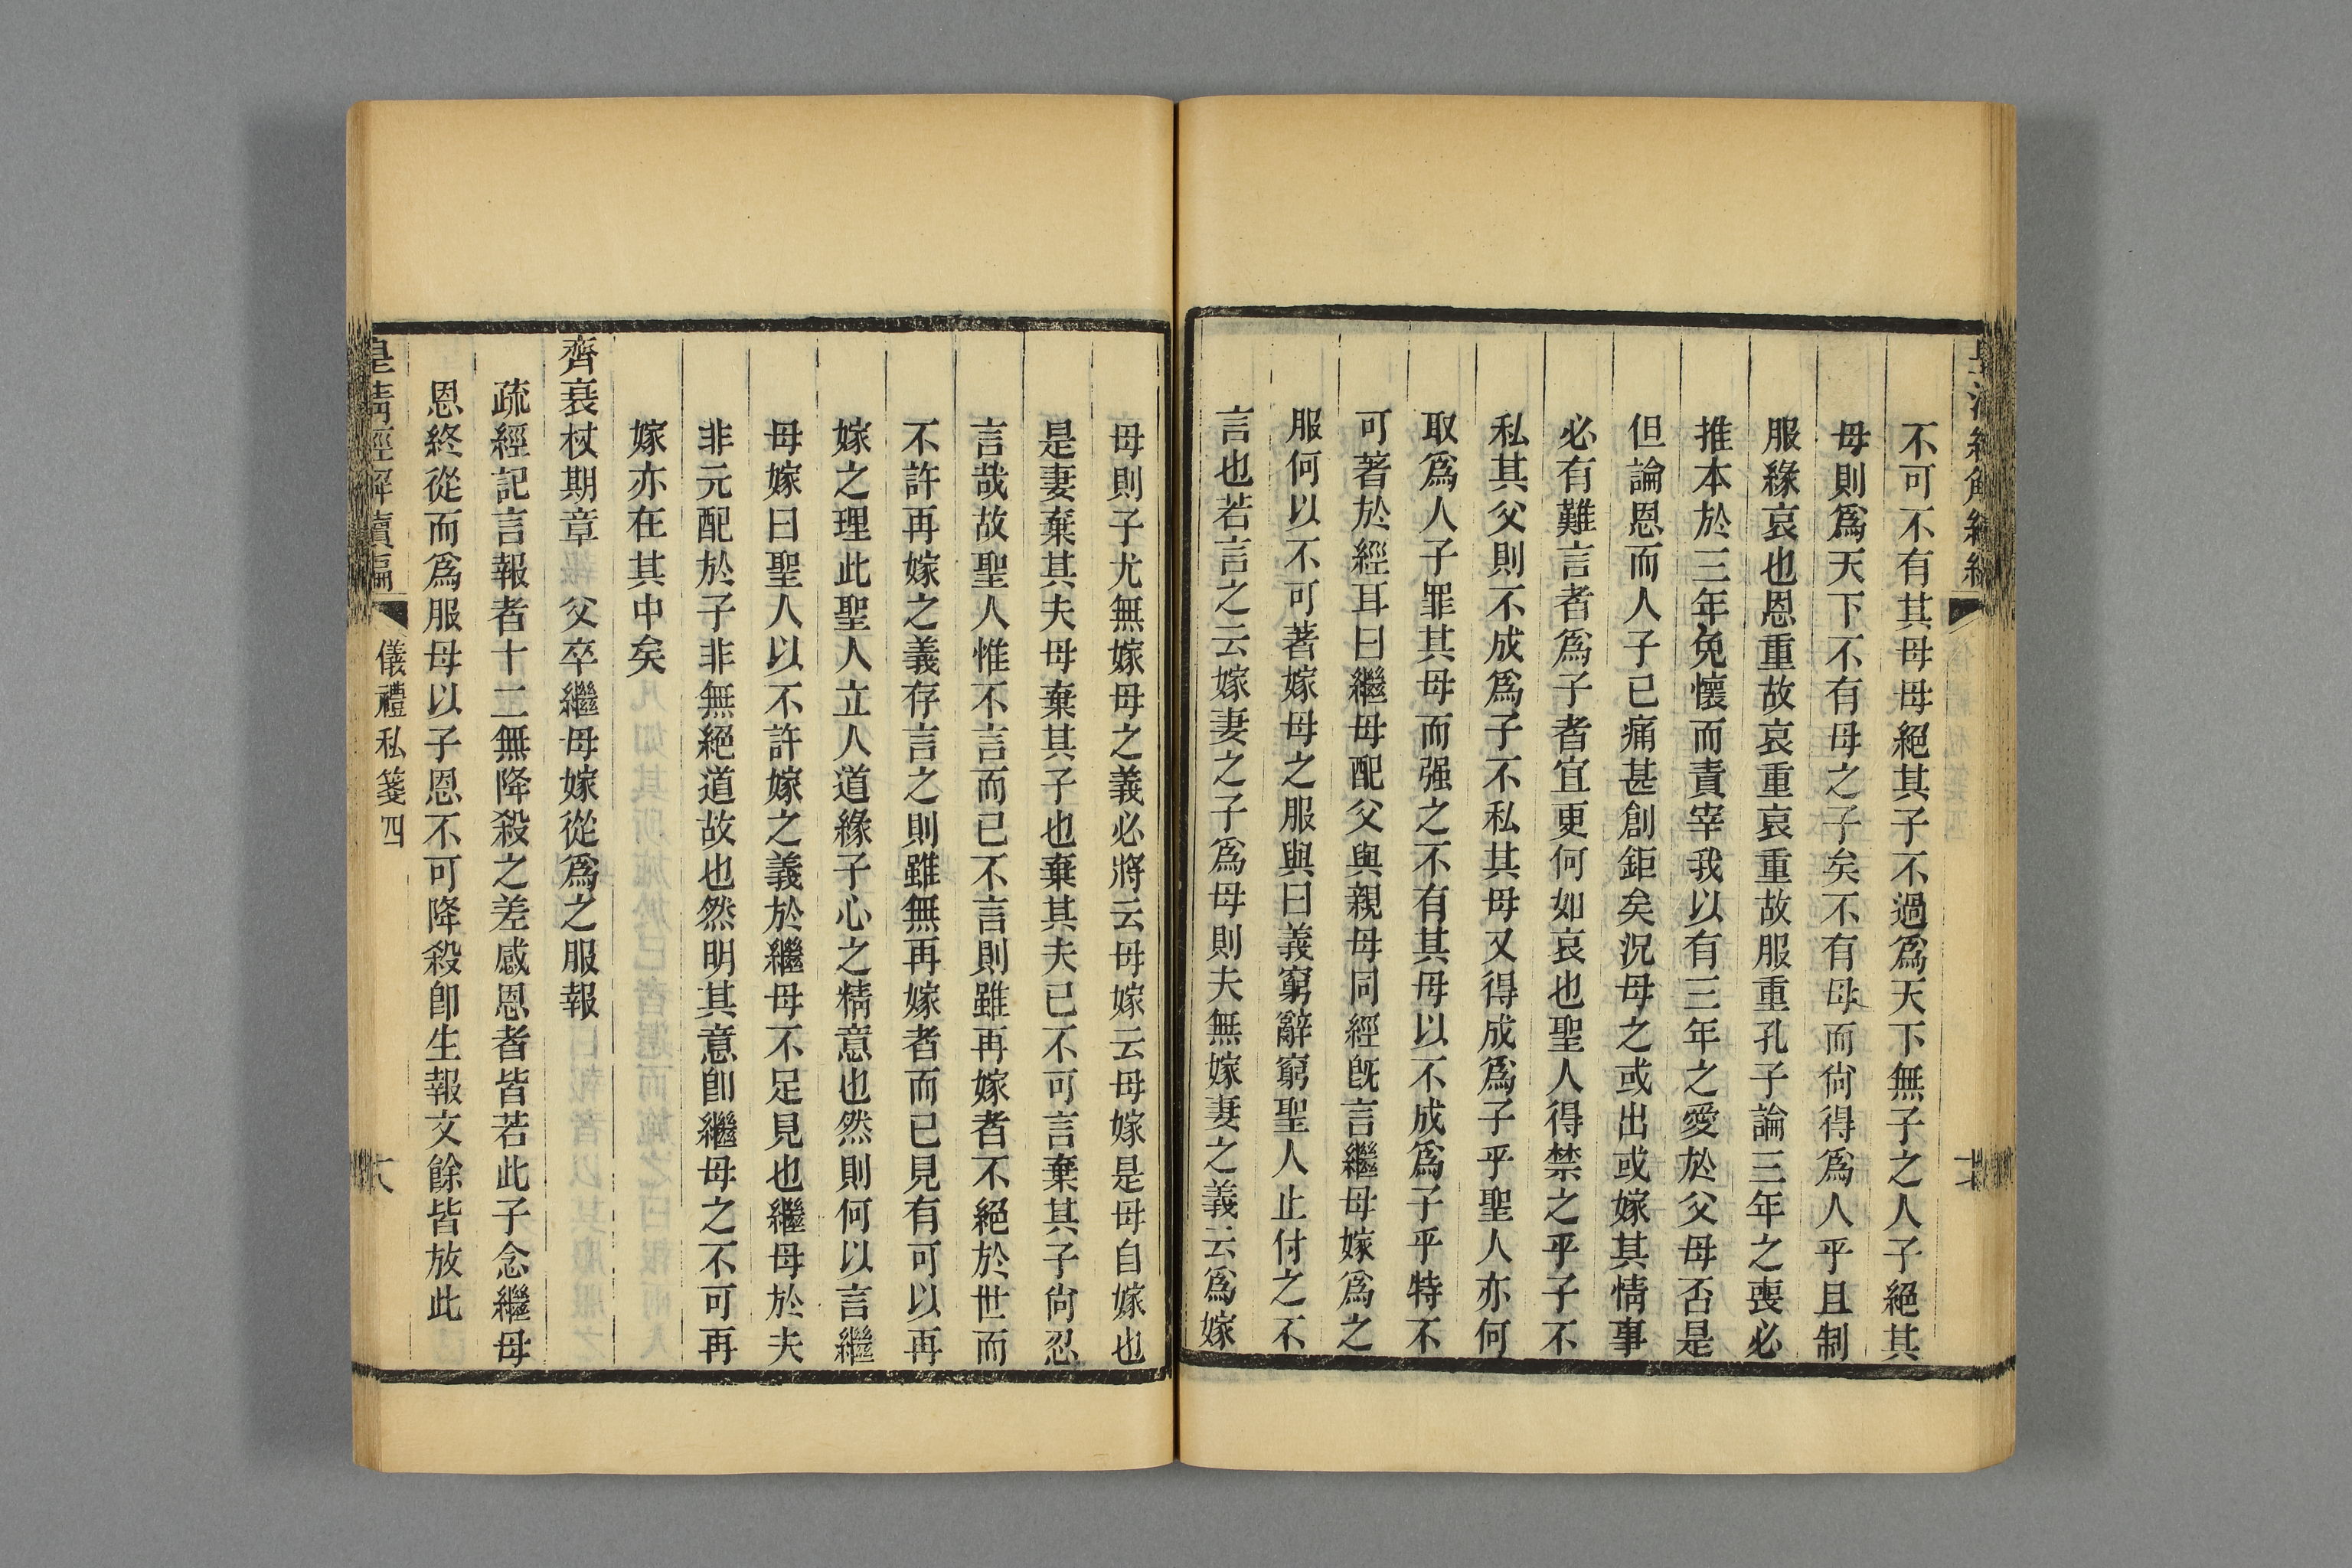 不可不有其母母絕其子不過爲天下無子之人子絕其
母則爲天下不有母之子矣不有母而尙得爲人乎且制
服緣哀也恩重故哀重哀重故服重孔子論三年之喪必
推本於三年免懷而責宰我以有三年之愛於父母否是
但論恩而人子已痛甚創鉅矣況母之或出或嫁其情事
必有難言者爲子者宜更何如哀也聖人得禁之乎子不
私其父則不成爲子不私其母又得成爲子乎聖人亦何
取爲人子罪其母而强之不有其母以不成爲子乎特不
可著於經耳曰繼母配父與親母同經既言繼母嫁爲之
服何以不可著嫁母之服與曰義窮辭窮聖人止付之不
言也若言之云嫁妻之子爲母則夫無嫁妻之義云爲嫁
母則子尤無嫁母之義必將云母嫁云母嫁是母自嫁也
是妻棄其夫母棄其子也棄其夫已不可言棄其子尙忍
言哉故聖人惟不言而已不言則雖再嫁者不絕於世而
不許再嫁之義存言之則雖無再嫁者而已見有可以再
嫁之理此聖人立人道緣子心之精意也然則何以言繼
母嫁曰聖人以不許嫁之義於繼母不足見也繼母於夫
非元配於子非無絕道故也然明其意卽繼母之不可再
嫁亦在其中矣
齊衰杖期章 父卒繼母嫁從爲之服報
疏經記言報者十二無降殺之差感恩者皆若此子念繼母
恩終從而爲服母以子恩不可降殺卽生報文餘皆放此
皇淸經解續編
儀禮私箋四